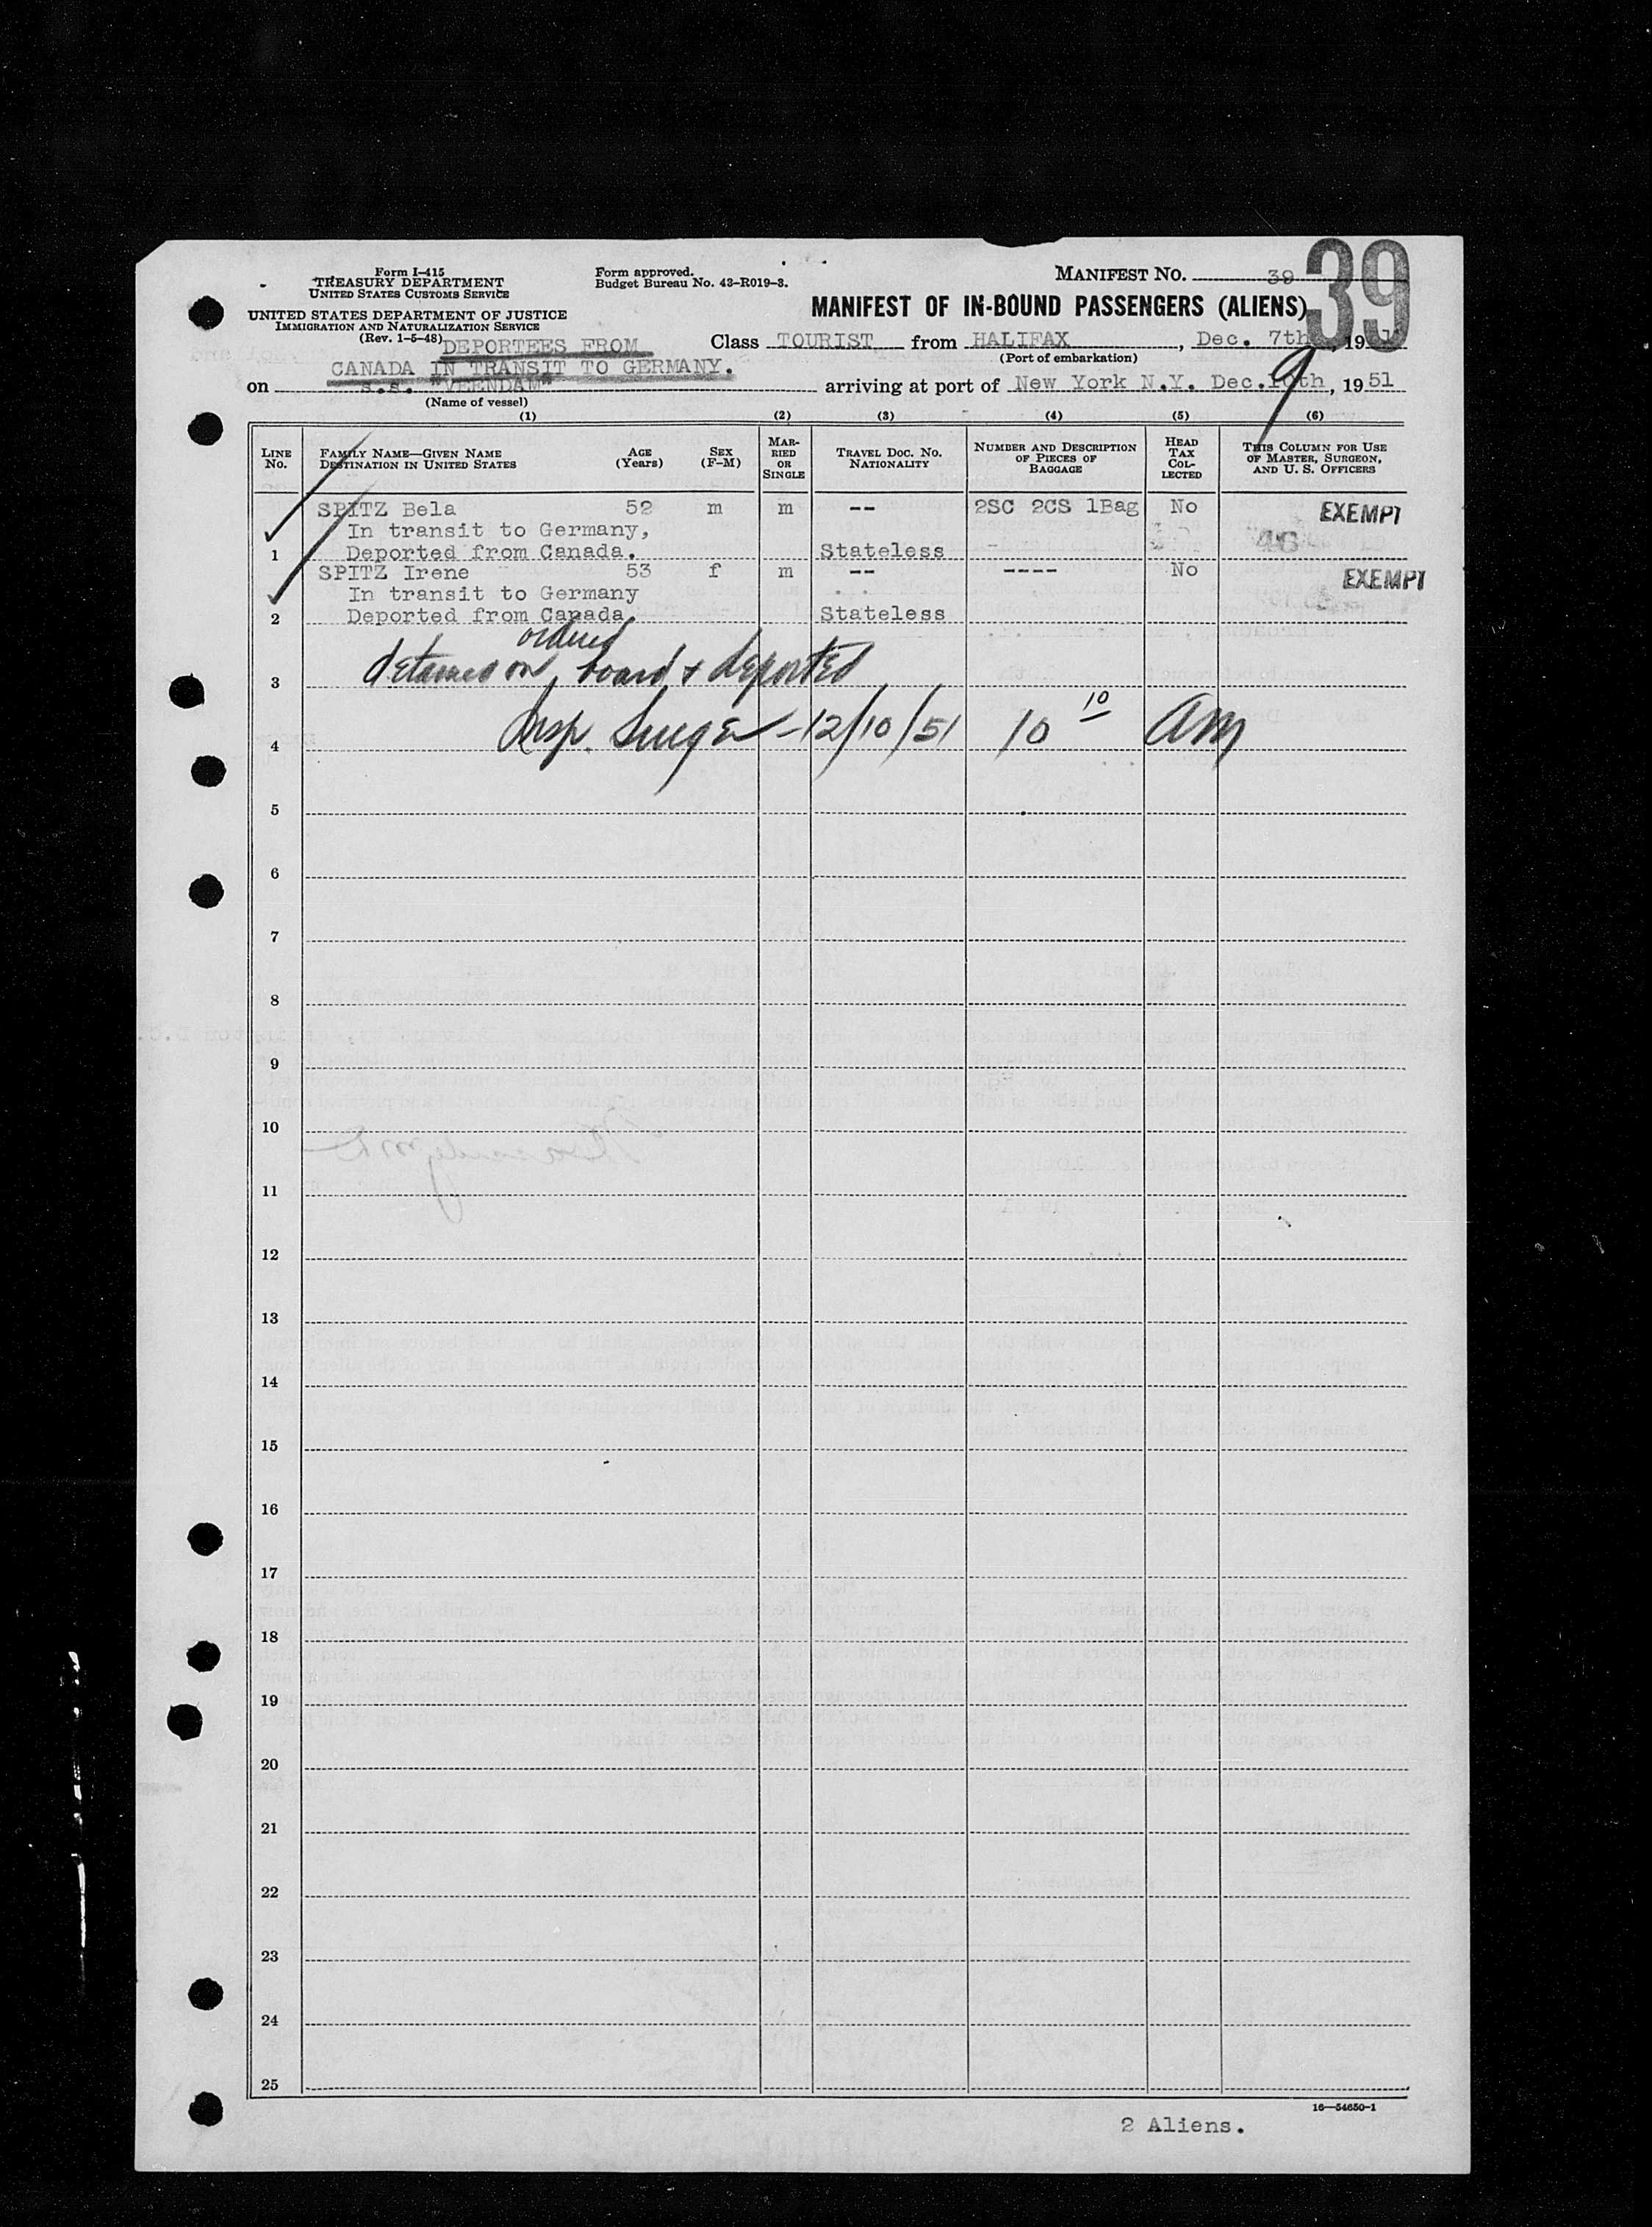 Form I-415
TREASURY DEPARTMENT
UNITED STATES CUSTOMS SERVICE
UNITED STATES DEPARTMENT OF JUSTICE
IMMIGRATION AND NATURALIZATION SERVICE
(Rev. 1-5-48)
Form approved.
Budget Bureau No. 43-R019-3.
MANIFEST NO. 39
39
MANIFEST OF IN-BOUND PASSENGERS (ALIENS)
DEPORTEES FROM
CANADA IN TRANSIT TO GERMANY.
Class TOURIST from HALIFAX, Dec. 7th, 1951
(Port of embarkation)
on s.s. "VEENDAM" arriving at port of New York N.Y. Dec. 10th, 1951
9
(Name of vessel)
(1) (2) (3) (4) (5) (6)
LINE No. FAMILY NAME—GIVEN NAME DESTINATION IN UNITED STATES AGE (Years) SEX (F-M) MARRIED OR SINGLE TRAVEL DOC. NO. NATIONALITY NUMBER AND DESCRIPTION OF PIECES OF BAGGAGE HEAD TAX COLLECTED THIS COLUMN FOR USE OF MASTER, SURGEON, AND U. S. OFFICERS
SPITZ Bela 52 m m -- 2SC 2CS 1Bag No EXEMPT
In transit to Germany,
1 Deported from Canada. Stateless
SPITZ Irene 53 f m -- ---- No EXEMPT
In transit to Germany
2 Deported from Canada. Stateless
ordered
3 detained on board & deported
4 Insp. 12/10/51 10 10 AM
5
6
7
8
9
10
11
12
13
14
15
16
17
18
19
20
21
22
23
24
25
16—54650-1
2 Aliens.